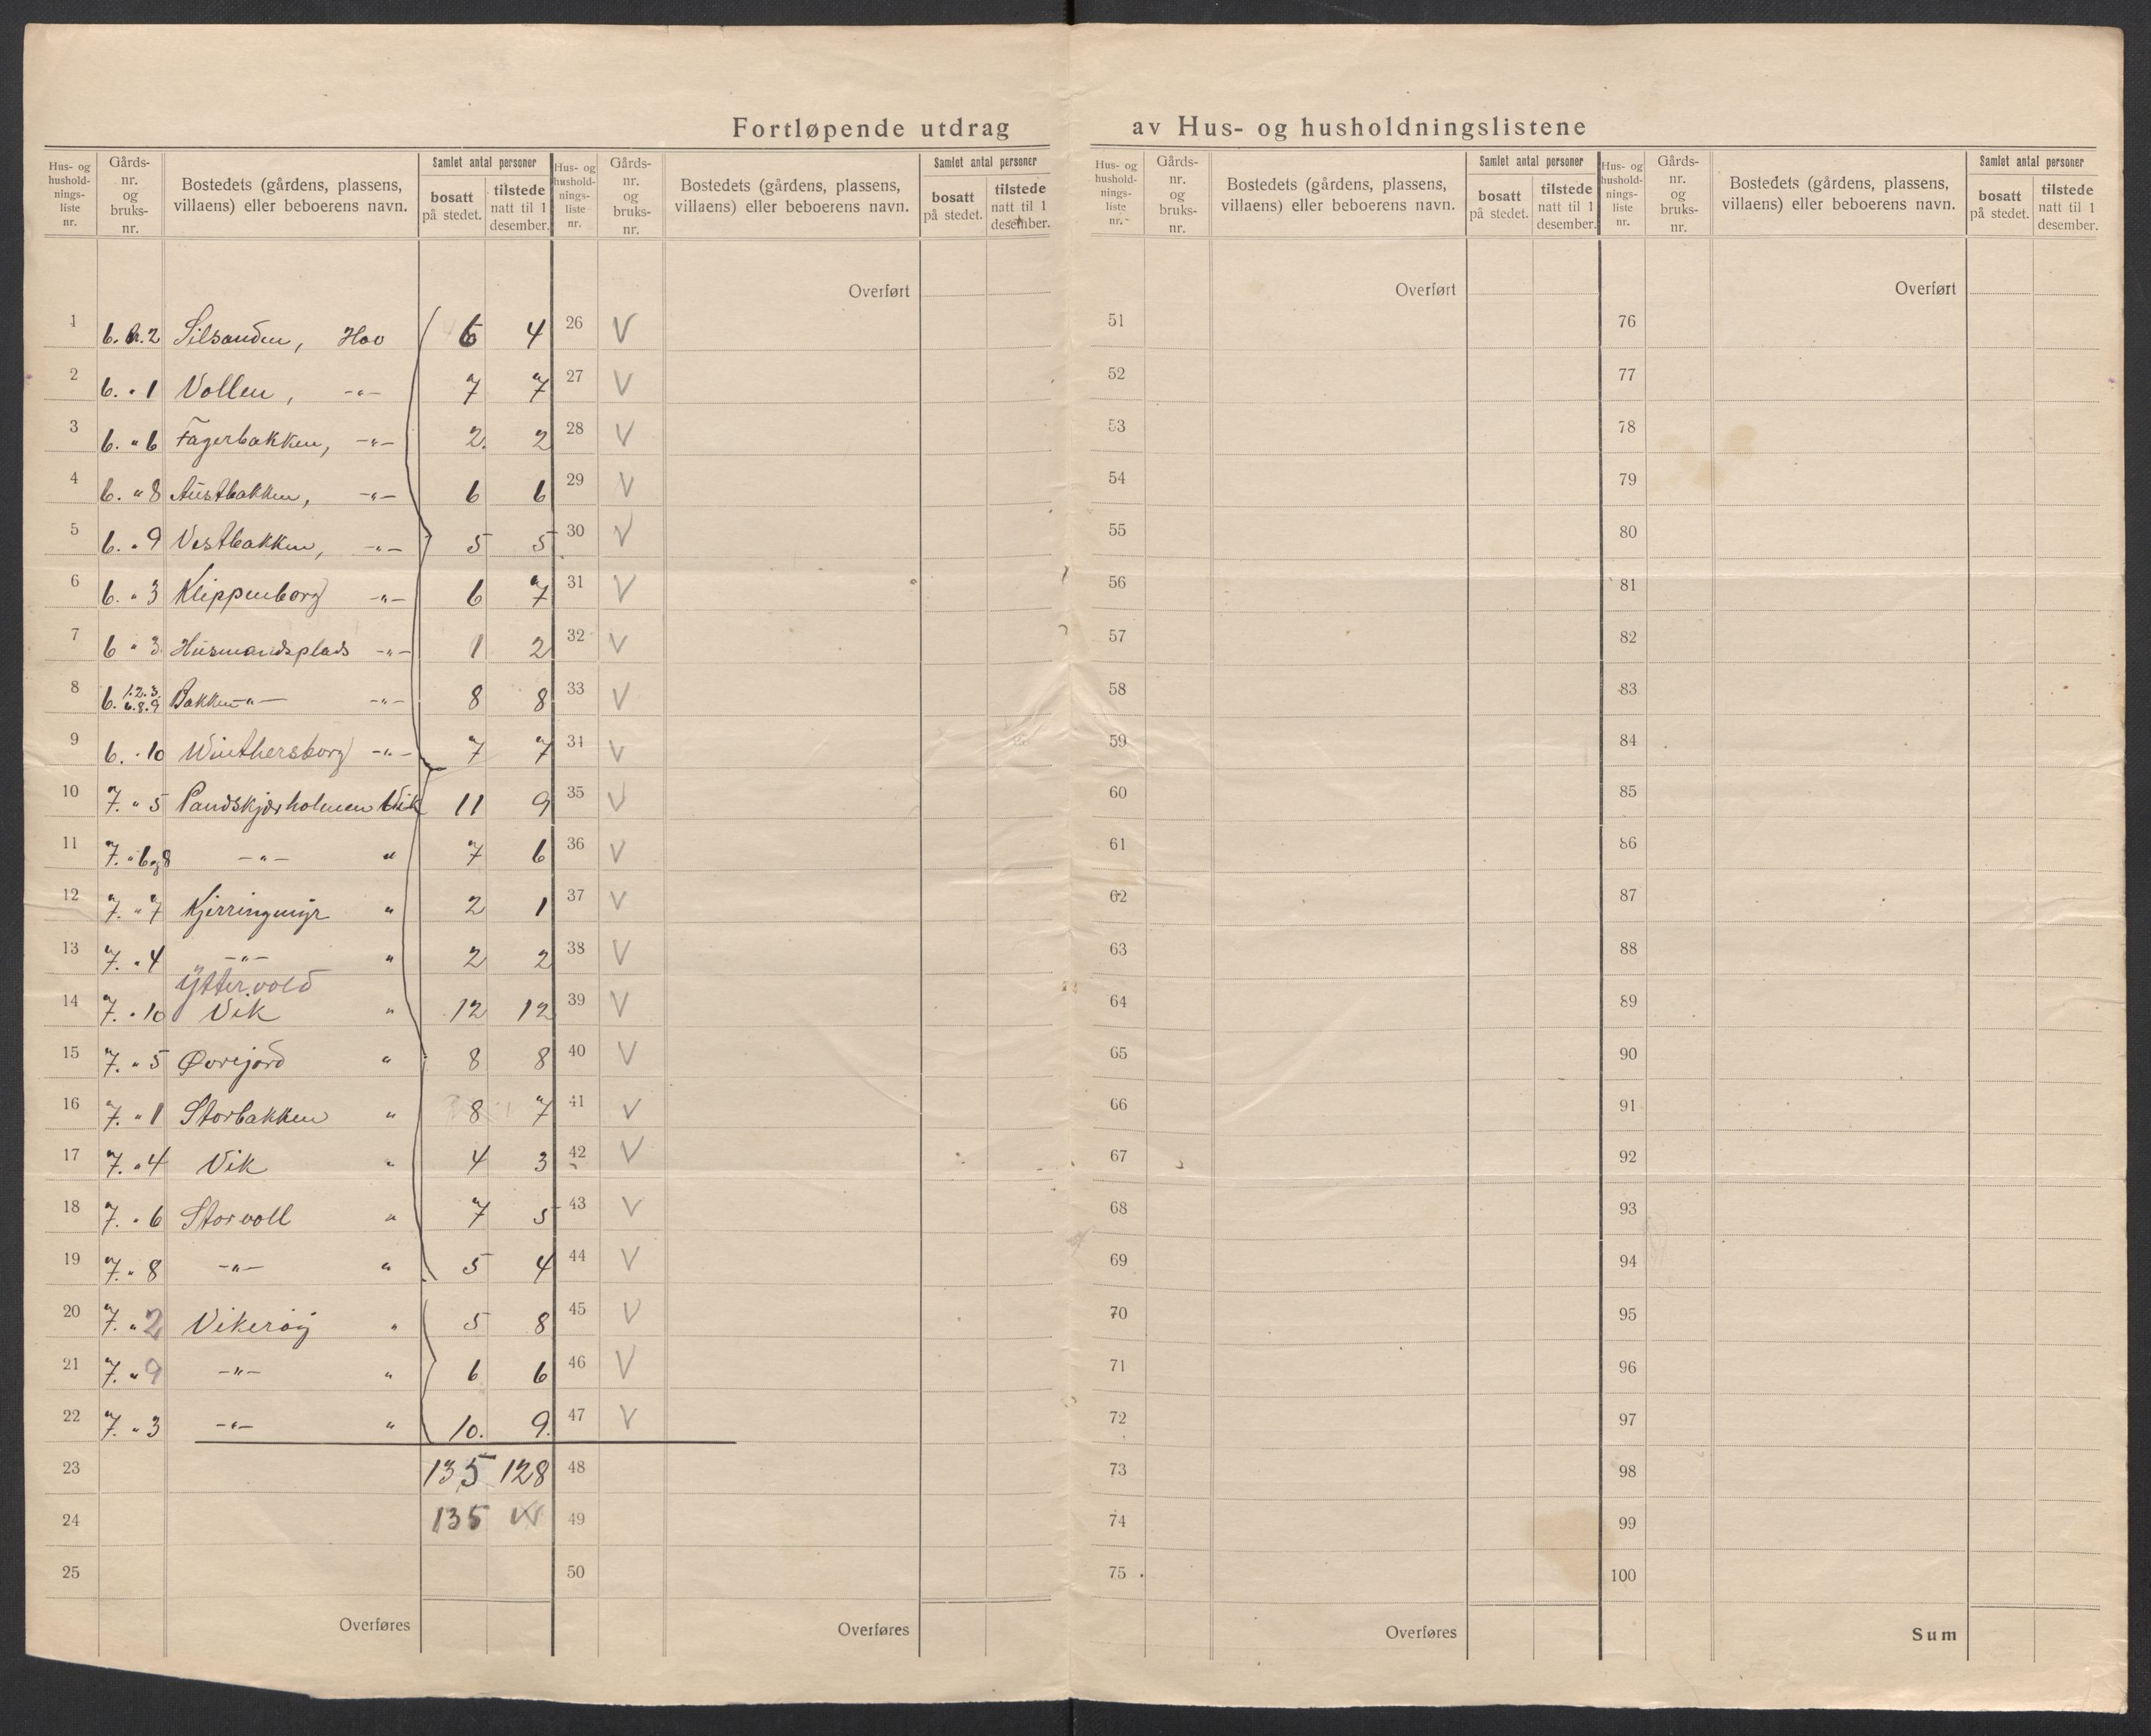 Fortløpende utdrag av Hus- og husholdningslistene
Hus- og hushold-nings-liste nr. | Gårds-nr. og bruks-nr. | Bostedets (gårdens, plassens, villaens) eller beboerens navn. | Samlet antal personer | bosatt på stedet. | tilstede natt til 1 desember.
Hus- og hushold-nings-liste nr. | Gårds-nr. og bruks-nr. | Bostedets (gårdens, plassens, villaens) eller beboerens navn. | Samlet antal personer | bosatt på stedet. | tilstede natt til 1 desember.
Hus- og hushold-nings-liste nr. | Gårds-nr. og bruks-nr. | Bostedets (gårdens, plassens, villaens) eller beboerens navn. | Samlet antal personer | bosatt på stedet. | tilstede natt til 1 desember.
Hus- og hushold-nings-liste nr. | Gårds-nr. og bruks-nr. | Bostedets (gårdens, plassens, villaens) eller beboerens navn. | Samlet antal personer | bosatt på stedet. | tilstede natt til 1 desember.
Overført Overført Overført
1 6. 2 Silsanden, Hov 6 4 26 V 51 76
2 6. " 1 Vollen, -"- 7 7 27 V 52 77
3 6. " 6 Fagerbakken, -"- 2. 2 28 V 53 78
4 6. " 8 Austbakken, -"- 6 6 29 V 54 79
5 6. " 9 Vestbakken, -"- 5 5 30 V 55 80
6 6. " 3 Klippenborg -"- 6 7 31 V 56 81
7 6 " 3 Husmandsplads -"- 1 2 32 V 57 82
8 6. 1.2.3. 6.8.9 Bakken -"- -"- 8 8 33 V 58 83
9 6. " 10 Winthersborg -"- 7 7 34 V 59 84
10 7. " 5 Sandskjærholmen Vik 11 9 35 V 60 85
11 7. " 6 og 8 -"- " 7 6 36 V 61 86
12 7. " 7 Kjerringmyr " 2 1 37 V 62 87
13 7. " 4 -"- " 2 2 38 V 63 88
Yttervold
14 7. " 10 Vik " 12 12 39 V 64 89
15 7. " 5 Øvrejord " 8 8 40 V 65 90
16 7. " 1 Storbakken " 8 7 41 V 66 91
17 7. " 4 Vik " 4 3 42 V 67 92
18 7. " 6 Storvoll " 7 5 43 V 68 93
19 7. " 8 -"- " 5 4 44 V 69 94
20 7. " 2 Vikerøy " 5 8 45 V 70 95
21 7. " 9 -"- " 6 6 46 V 71 96
22 7. " 3 -"- " 10. 9. 47 V 72 97
23 135 128 48 73 98
24 135 49 74 99
25 50 75 100
Overføres Overføres Overføres Sum